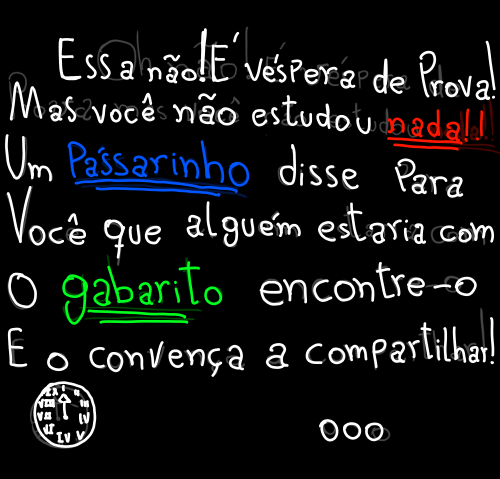 Essa não! É véspera de Prova!
Mas você não estudou nada!!
Um Pássarinho disse Para
Você que alguém estaria com
O gabarito encontre-o
E o convença a compartilhar!
ooo